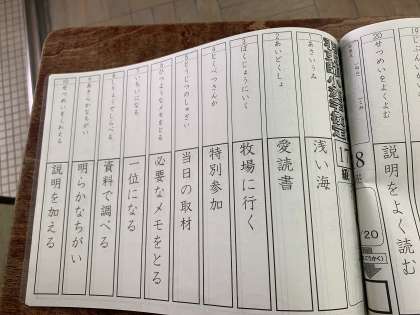 せつめいをよくよむ
20
説明をよく読む
17
8
20
1 あさいうみ
浅い海
2 あいどくしょ
愛読書
3 ぼくじょうにいく
牧場に行く
4 とくべつさんか
特別参加
5 とうじつのしゅざい
当日の取材
6 ひつようなメモをとる
必要なメモをとる
7 いちいになる
一位になる
8 しりょうでしらべる
資料で調べる
9 あきらかなちがい
明らかなちがい
10 せつめいをくわえる
説明を加える